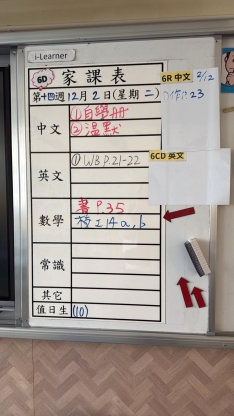 i-Learner
6D 家課表
第十四週12月2日(星期二)
中文 ①自學冊
②溫默
英文 ①WB P.21-22
數學 書 P.35
校工14a,b
常識
其它
值日生 (10)
6R 中文 2/12
作P.23
6CD 英文